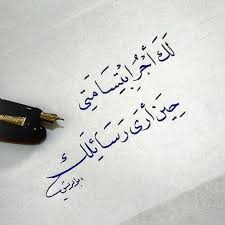 لَكَ أَجْرُ ابْتِسَامَتِي
حِينَ أَرَى رَسَائِلَكَ